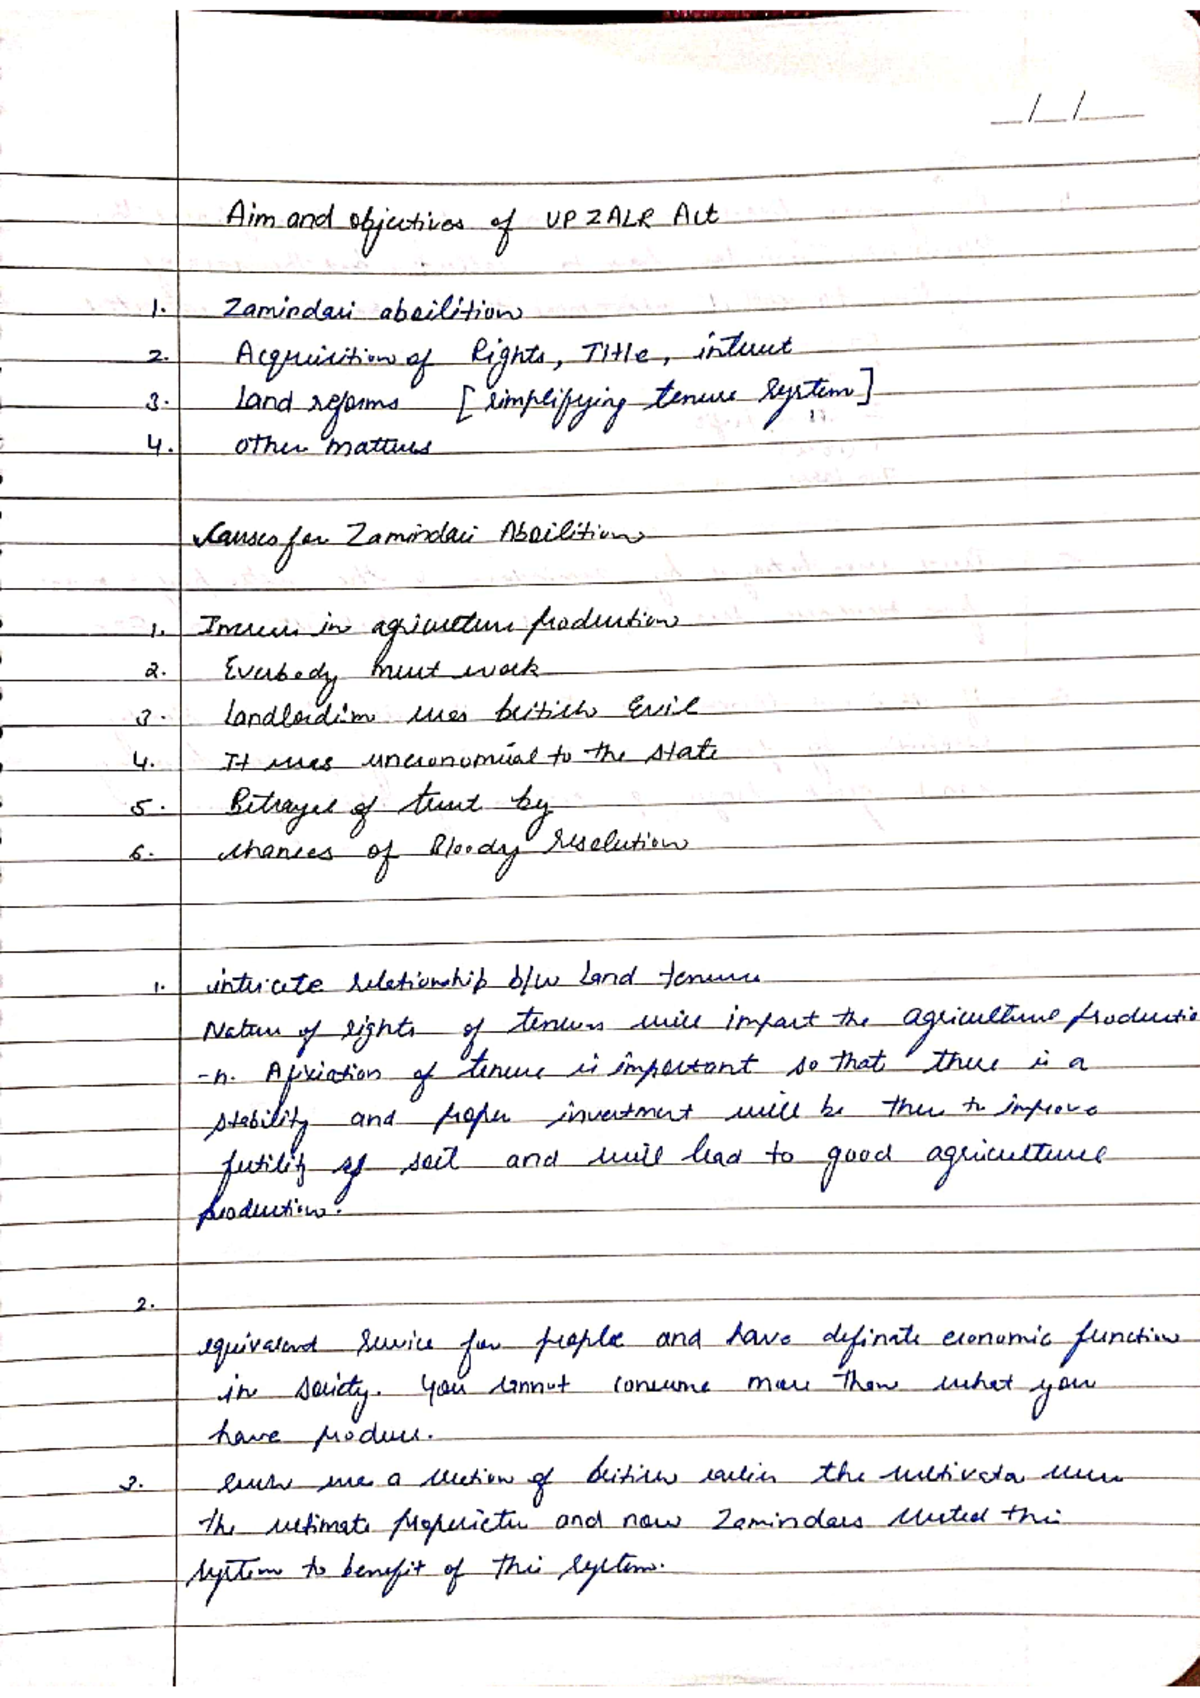 __/__/____
Aim and objectives of UP ZALR Act
1. Zamindari aboilition
2. Acquisition of Rights, Title, interest
3. land reforms [simplifying tenure system]
4. other matters
Causes for Zamindari Aboilition
1. Increase in agriculture production
2. Everbody must work
3. landlordism was british Evil
4. It was uneconomical to the state
5. Betrayel of trust by
6. chances of Bloody
1. intricate relationship b/w land tenure
Nature of rights of tenures will impact the agriculture productio
-n. Afixiation of tenure is important so that there is a
stability and proper investment will be there to improve
fertility of soil and will lead to good agriculture
production.
2.
equivalend service for people and have definate economic function
in society. You cannot consume more than what you
have produce.
3. such was a creation of british earlier the cultivator were
the ultimate proprietor and now Zamindars created this
system to benefit of this system.